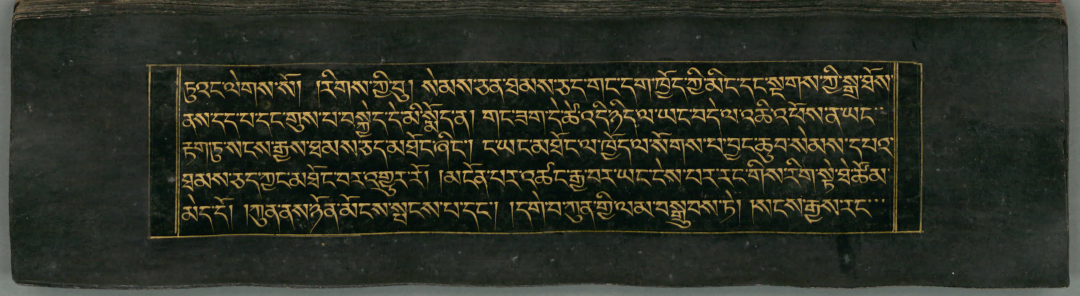 ཏུའང་ལེགས་སོ། །རིགས་ཀྱི་བུ། སེམས་ཅན་ཐམས་ཅད་གང་དག་ཁྱོད་ཀྱི་མིང་དང་སྔགས་ཀྱི་སྒྲ་ཐོས་
ནས་དད་པ་དང་གུས་པ་བསྐྱེད་དེ་མི་སྨོད་ན། གང་ཟག་དེ་ཚེ་འདི་ཉིད་ལ་ཡང་བདེ་ལ་འཆི་འཕོས་ན་ཡང་
རྟག་ཏུ་སངས་རྒྱས་ཐམས་ཅད་མཐོང་ཞིང་། ང་ཡང་མཐོང་ལ་ཁྱོད་ལ་སོགས་པ་བྱང་ཆུབ་སེམས་དཔའ་
ཐམས་ཅད་ཀྱང་མཐོང་བར་འགྱུར་རོ། །མངོན་པར་འཚང་རྒྱ་བར་ཡང་ངེས་པར་རང་གིས་རིག་སྟེ་ཐེ་ཚོམ་
མེད་དོ། །ཀུན་ནས་ཉོན་མོངས་སྤངས་པ་དང་། །དགེ་བ་ཀུན་གྱི་ལམ་བསྒྲུབས་ཏེ། །སངས་རྒྱས་རང་